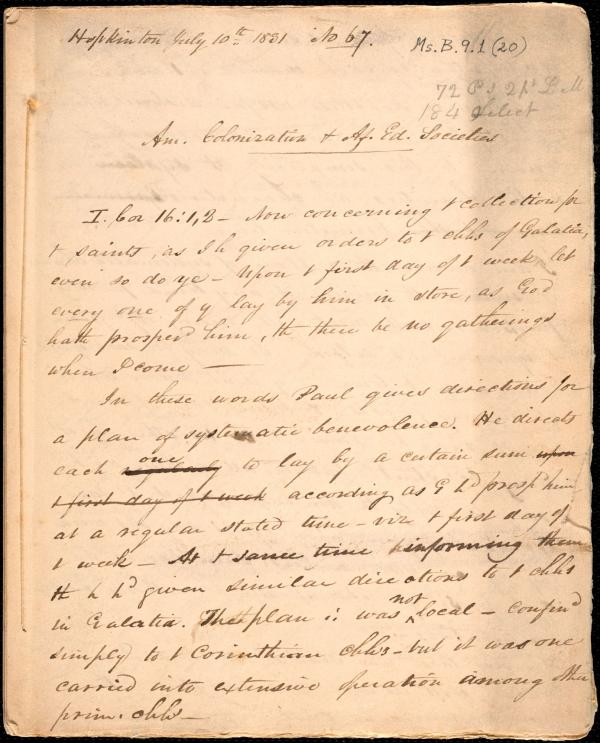 Hopkinton July 10th 1831 No 67.
Ms. B. 9. 1 (20)
72 Ps 2 Pt L M
184 Select
Am. Colonization & Af. Ed. Societies
I. Cor 16:1,2 - Now concerning t collection for
t saints, as I h given orders to t chhs of Galatia,
even so do ye - Upon t first day of t week let
every one of y lay by him in store, as God
hath prosperd him, tht there be no gatherings
when I come —
In these words Paul gives directions for
a plan of systematic benevolence. He directs
each one to lay by a certain sum upon
t first day of t week according as G hd prospd him
at a regular stated time - viz t first day of
t week - At t same time informing them
tht h hd given similar directions to t chhs
in Galatia. The plan i: was not local - confind
simply to t Corinthian chhs - but it was one
carried into extensive operation among other
prim. chhs -